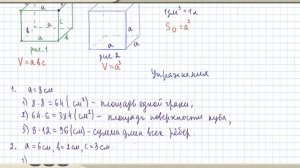 a
a
b
c
b
a
a
a
a
a
1дм³ = 1л
S□ = a²
рис.1
рис.2
V = abc
V = a³
Упражнения
1. a = 8 см
1) 8·8 = 64 (см²) - площадь одной грани,
2) 64·6 = 384 (см²) - площадь поверхности куба,
3) 8·12 = 96 (см) - сумма длин всех рёбер
2. a = 6см, b = 2см, c = 3см
1)